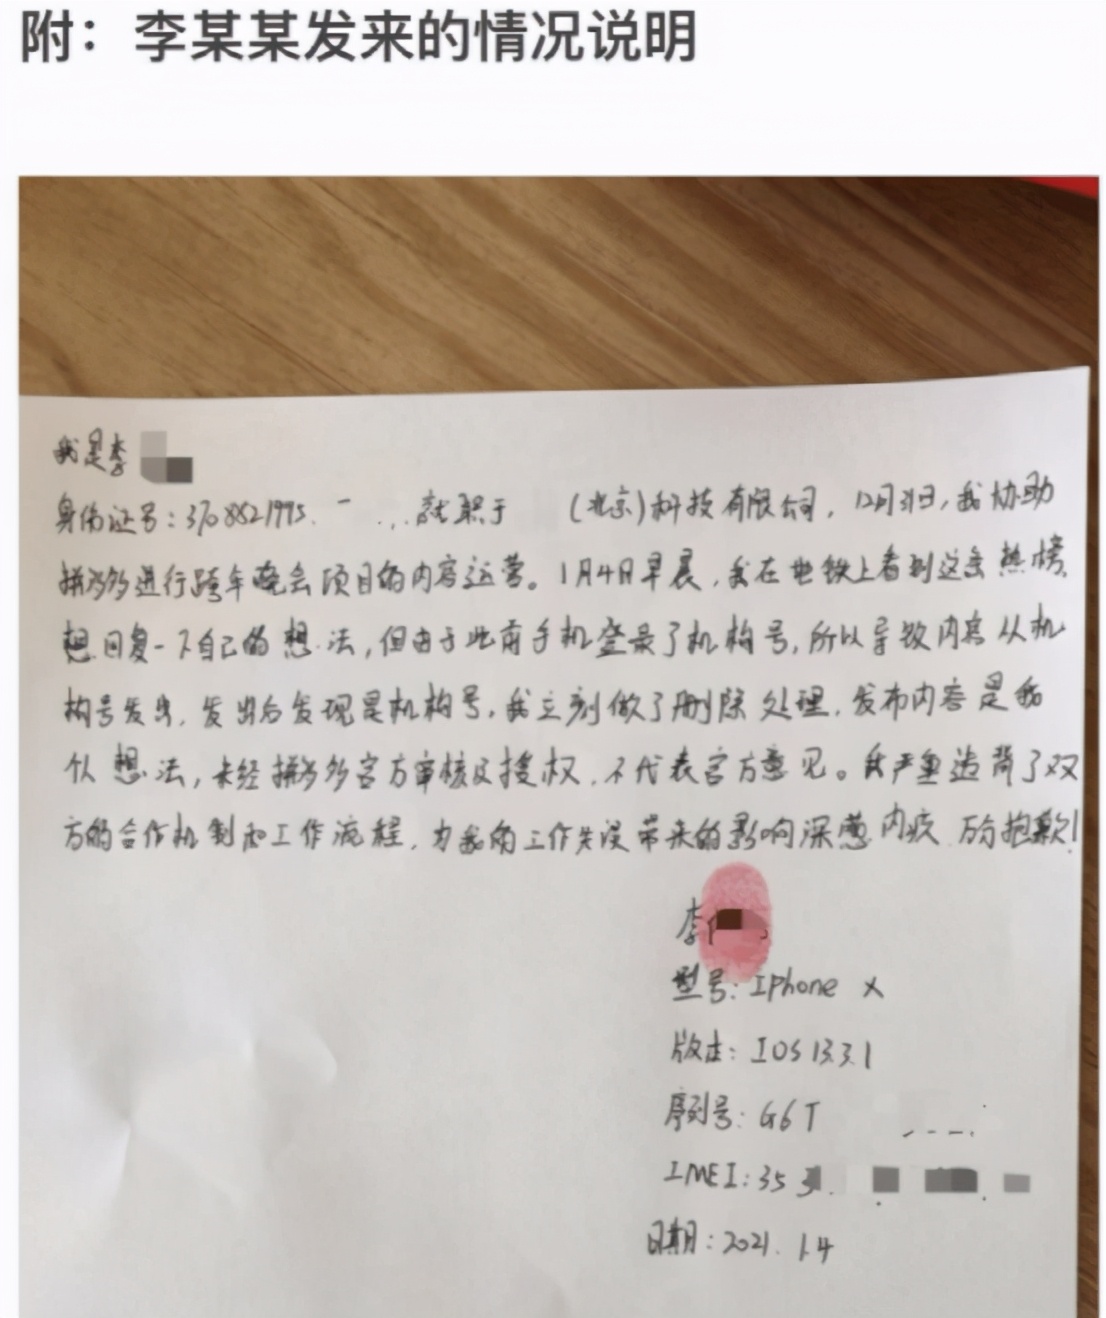 附：李某某发来的情况说明
我是李
身份证号：3708821995. 就职于 (北京)科技有限公司，12月31日，我协助
拼多多进行跨年晚会项目的内容运营。1月4日早晨，我在地铁上看到这条热榜，
想回复一下自己的想法，但由于此前手机登录了机构号，所以导致内容从机
构号发出，发出后发现是机构号，我立刻做了删除处理，发布内容是我
个人想法，未经拼多多官方审核及授权，不代表官方意见。我严重违背了双
方的合作机制和工作流程，为我的工作失误带来的影响深感内疚 万分抱歉！
李
型号：Iphone X
版本：IOS 13.3.1
序列号：G6T
IMEI：353
日期：2021.1.4